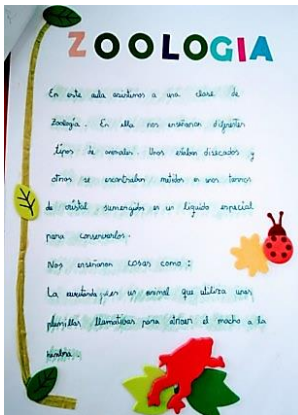 ZOOLOGIA
En este aula asistimos a una clase de
Zoología. En ella nos enseñaron diferentes
tipos de animales. Unos estaban disecados y
otros se encontraban metidos en unos tarros
de cristal sumergidos en un líquido especial
para conservarlos.
Nos enseñaron cosas como:
La es un animal que utiliza unas
plumillas llamativas para atraer el macho a la
hembra.